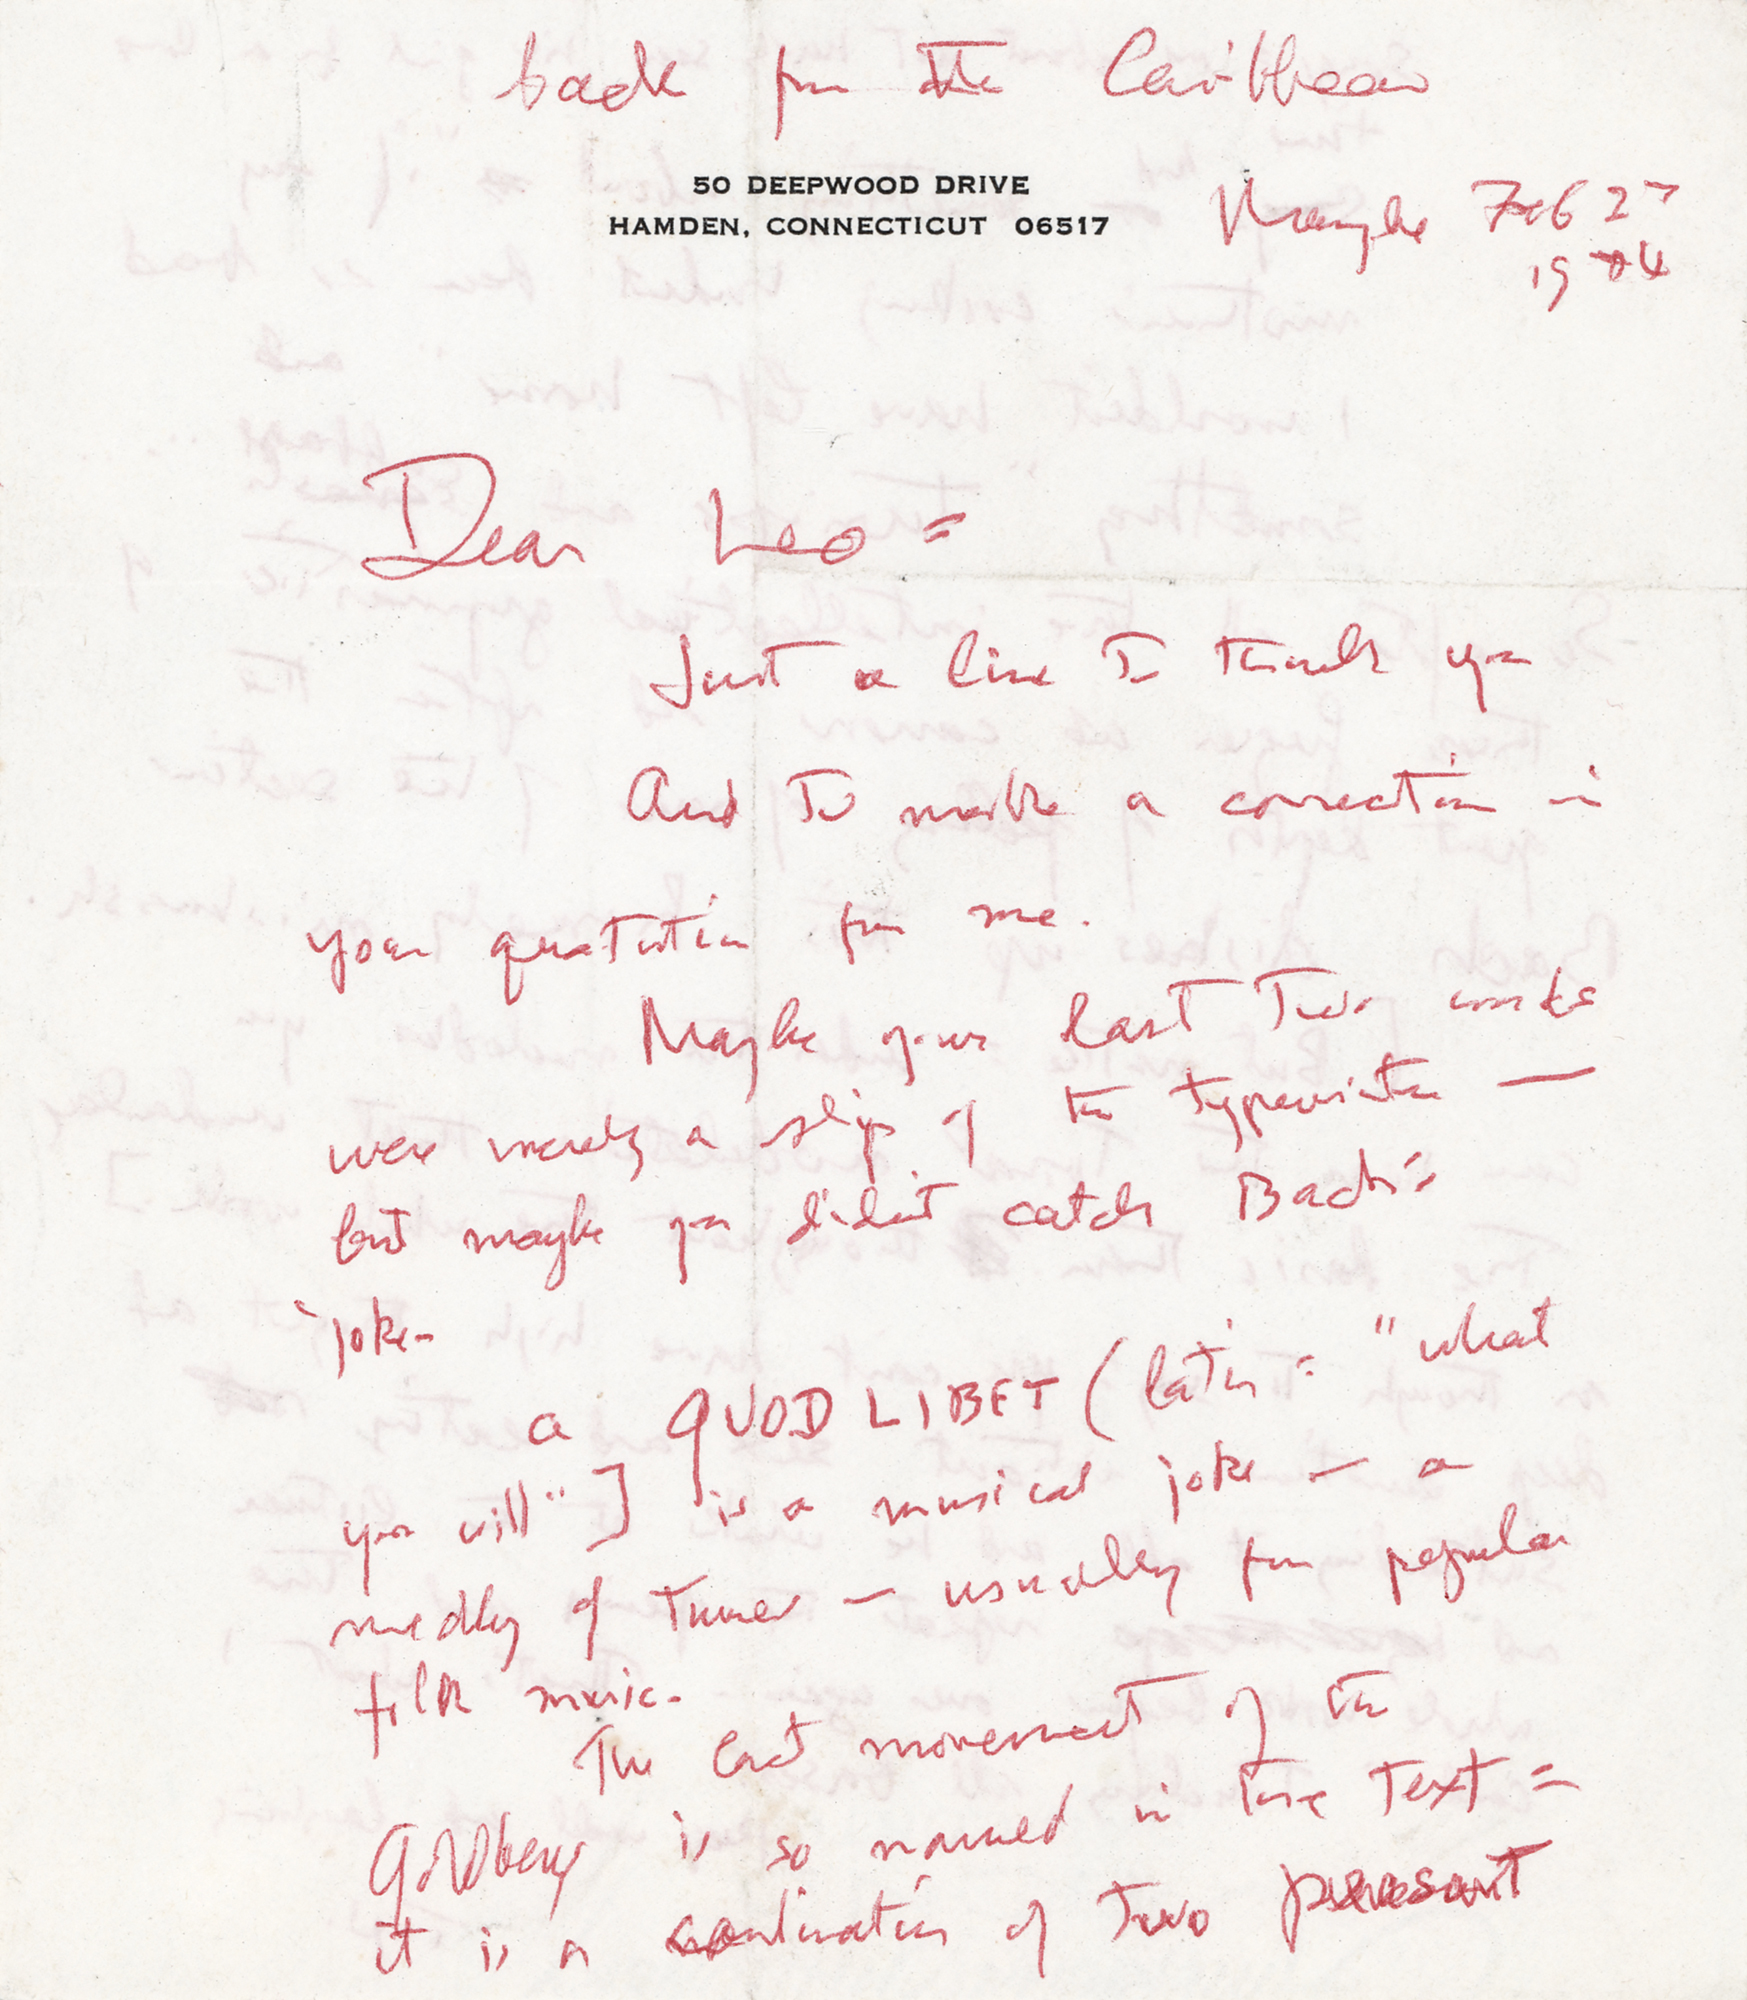 back from the Caribbean
50 DEEPWOOD DRIVE
HAMDEN, CONNECTICUT 06517
Maybe Feb 27
1974
Dear Leo =
Just a line To thank you
And To make a correction in
your quotation from me.
Maybe your last Two words
were merely a slip of the typewriter —
but maybe you didn't catch Bach's
joke.
a QUODLIBET (latin = "what
you will"] is a musical joke — a
medley of tunes — usually from popular
folk music.
The last movement of the
Goldberg is so named in the Text =
it is a combination of Two peasant